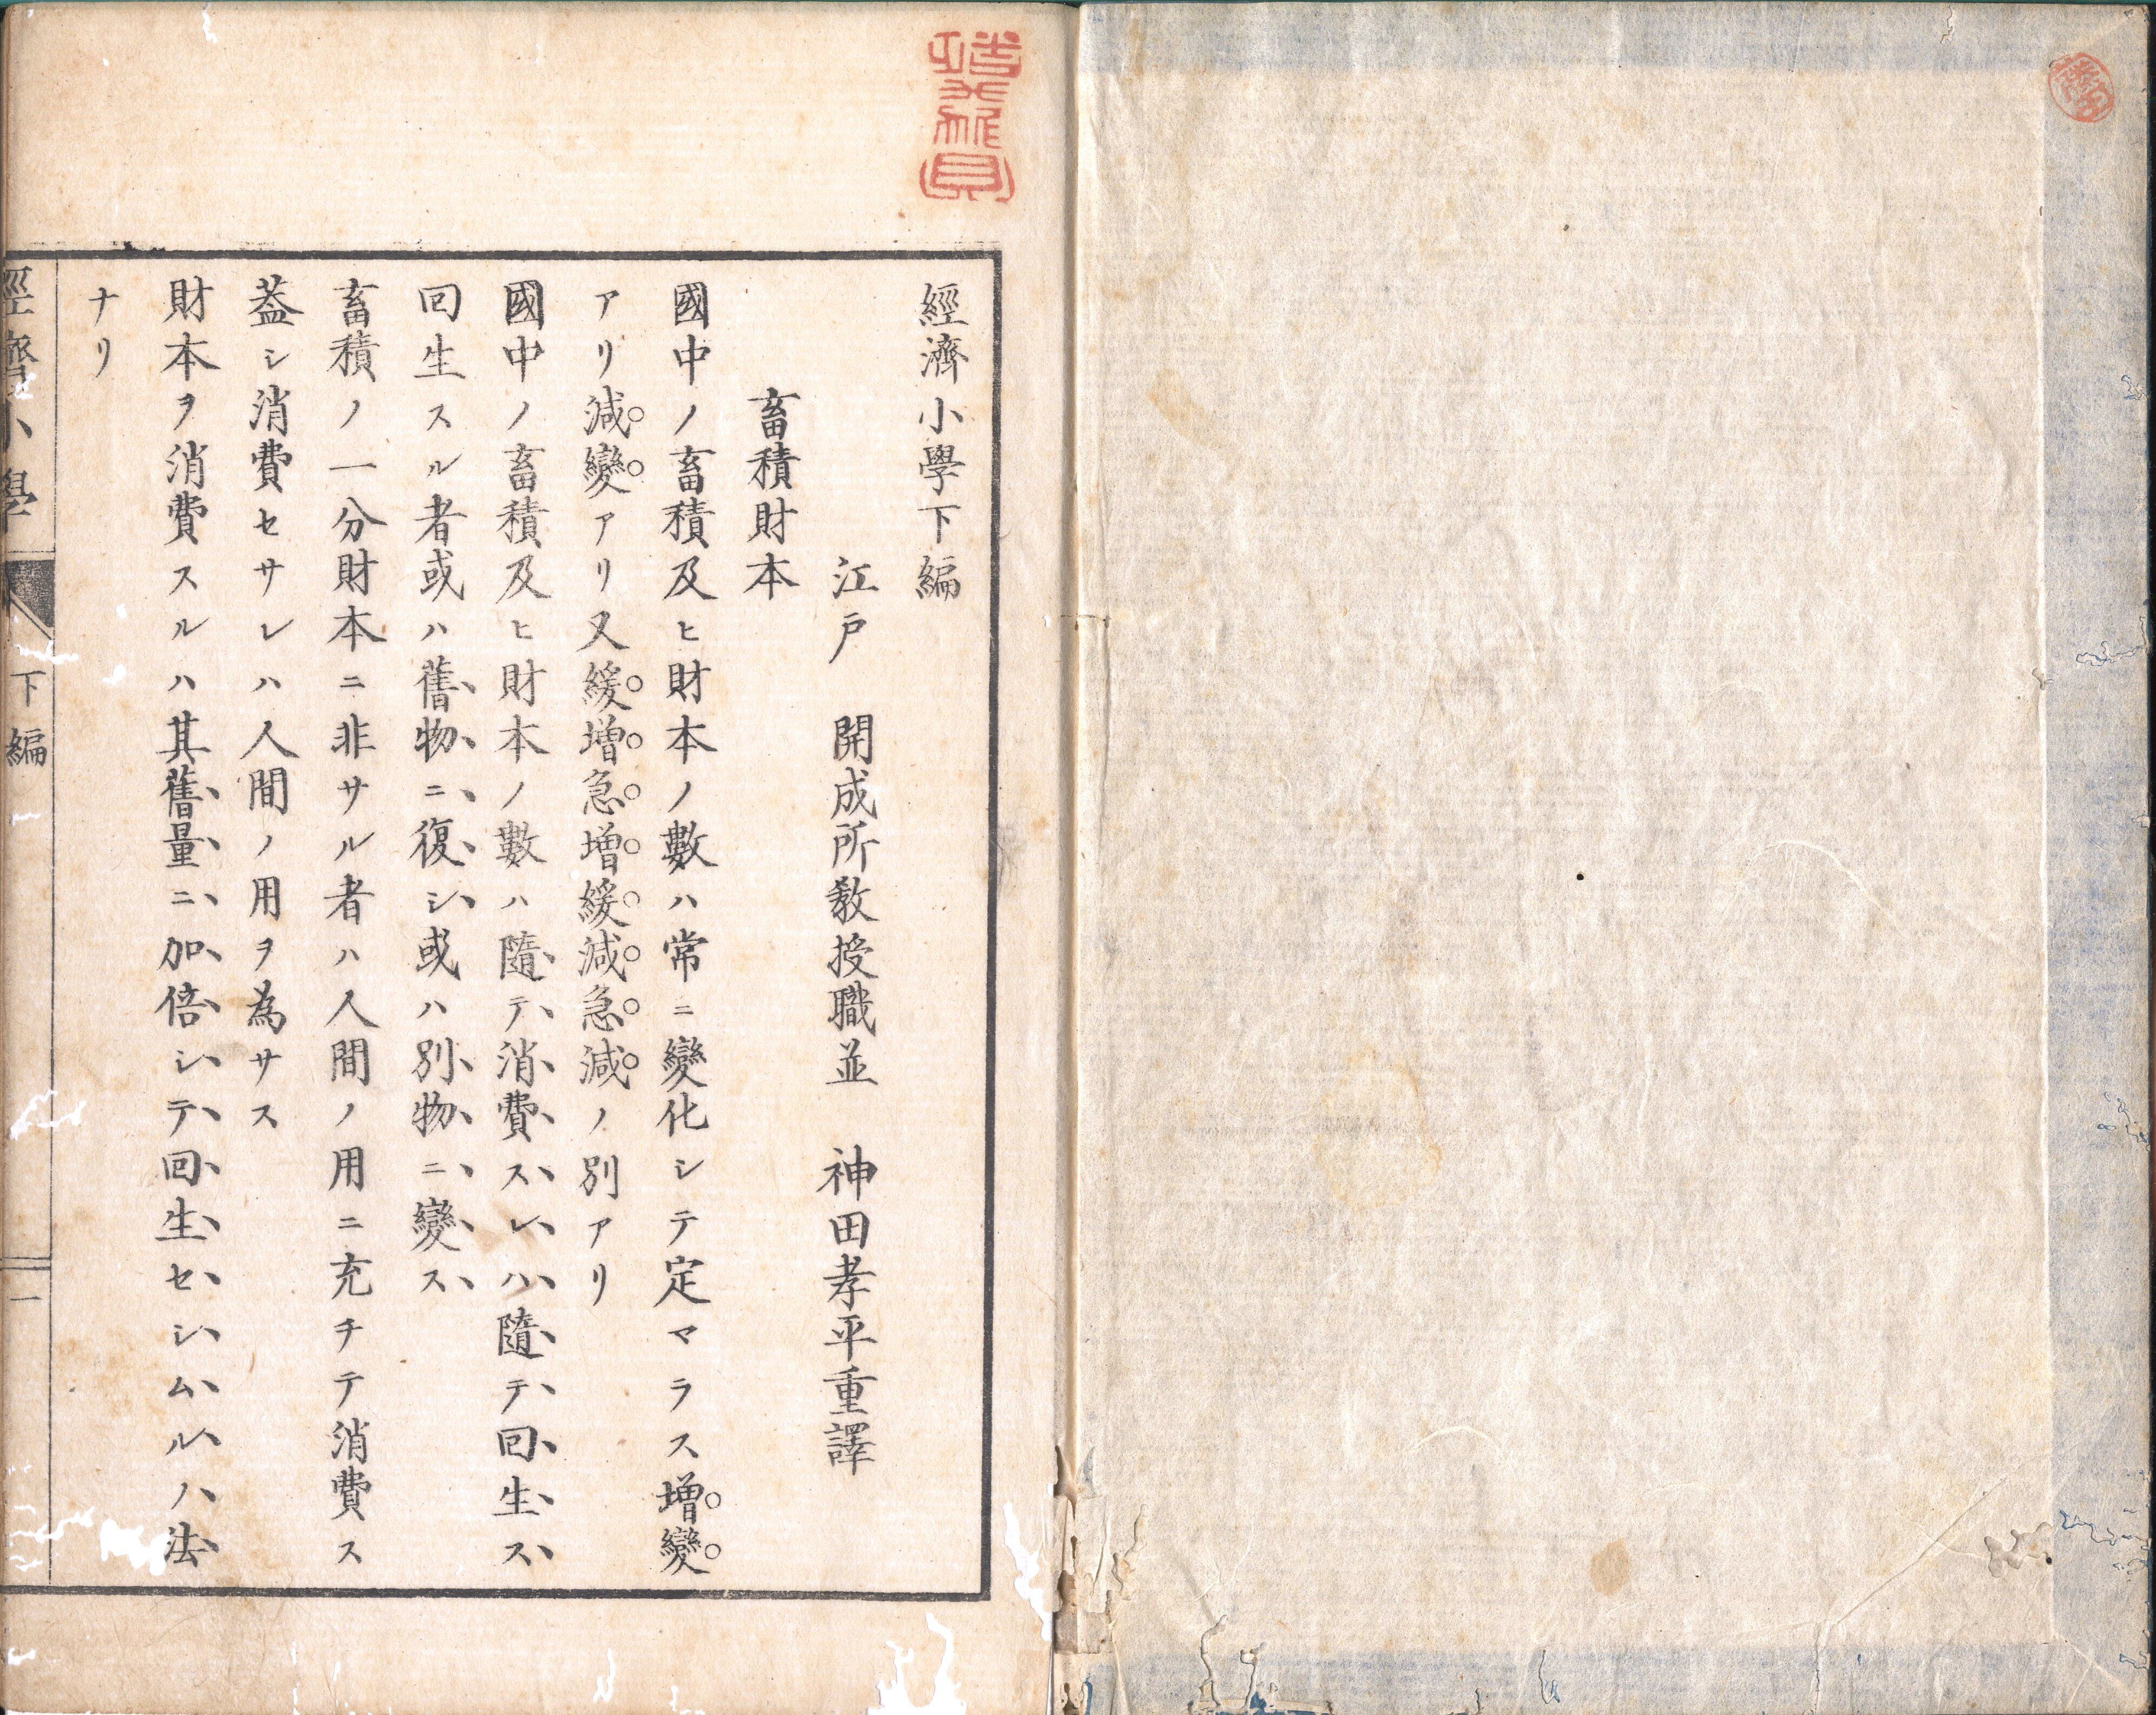 經濟小學下編
江戸 開成所教授職並 神田孝平重譯
畜積財本
國中ノ畜積及ヒ財本ノ數ハ常ニ變化シテ定マラス増變
アリ減變アリ又緩増急増緩減急減ノ別アリ
國中ノ畜積及ヒ財本ノ數ハ隨テ消費スレハ隨テ回生ス
回生スル者或ハ舊物ニ復シ或ハ別物ニ變ス
畜積ノ一分財本ニ非サル者ハ人間ノ用ニ充チテ消費ス
葢シ消費セサレハ人間ノ用ヲ為サス
財本ヲ消費スルハ其舊量ニ加倍シテ回生セシムルノ法
ナリ
經濟小學 下編 一